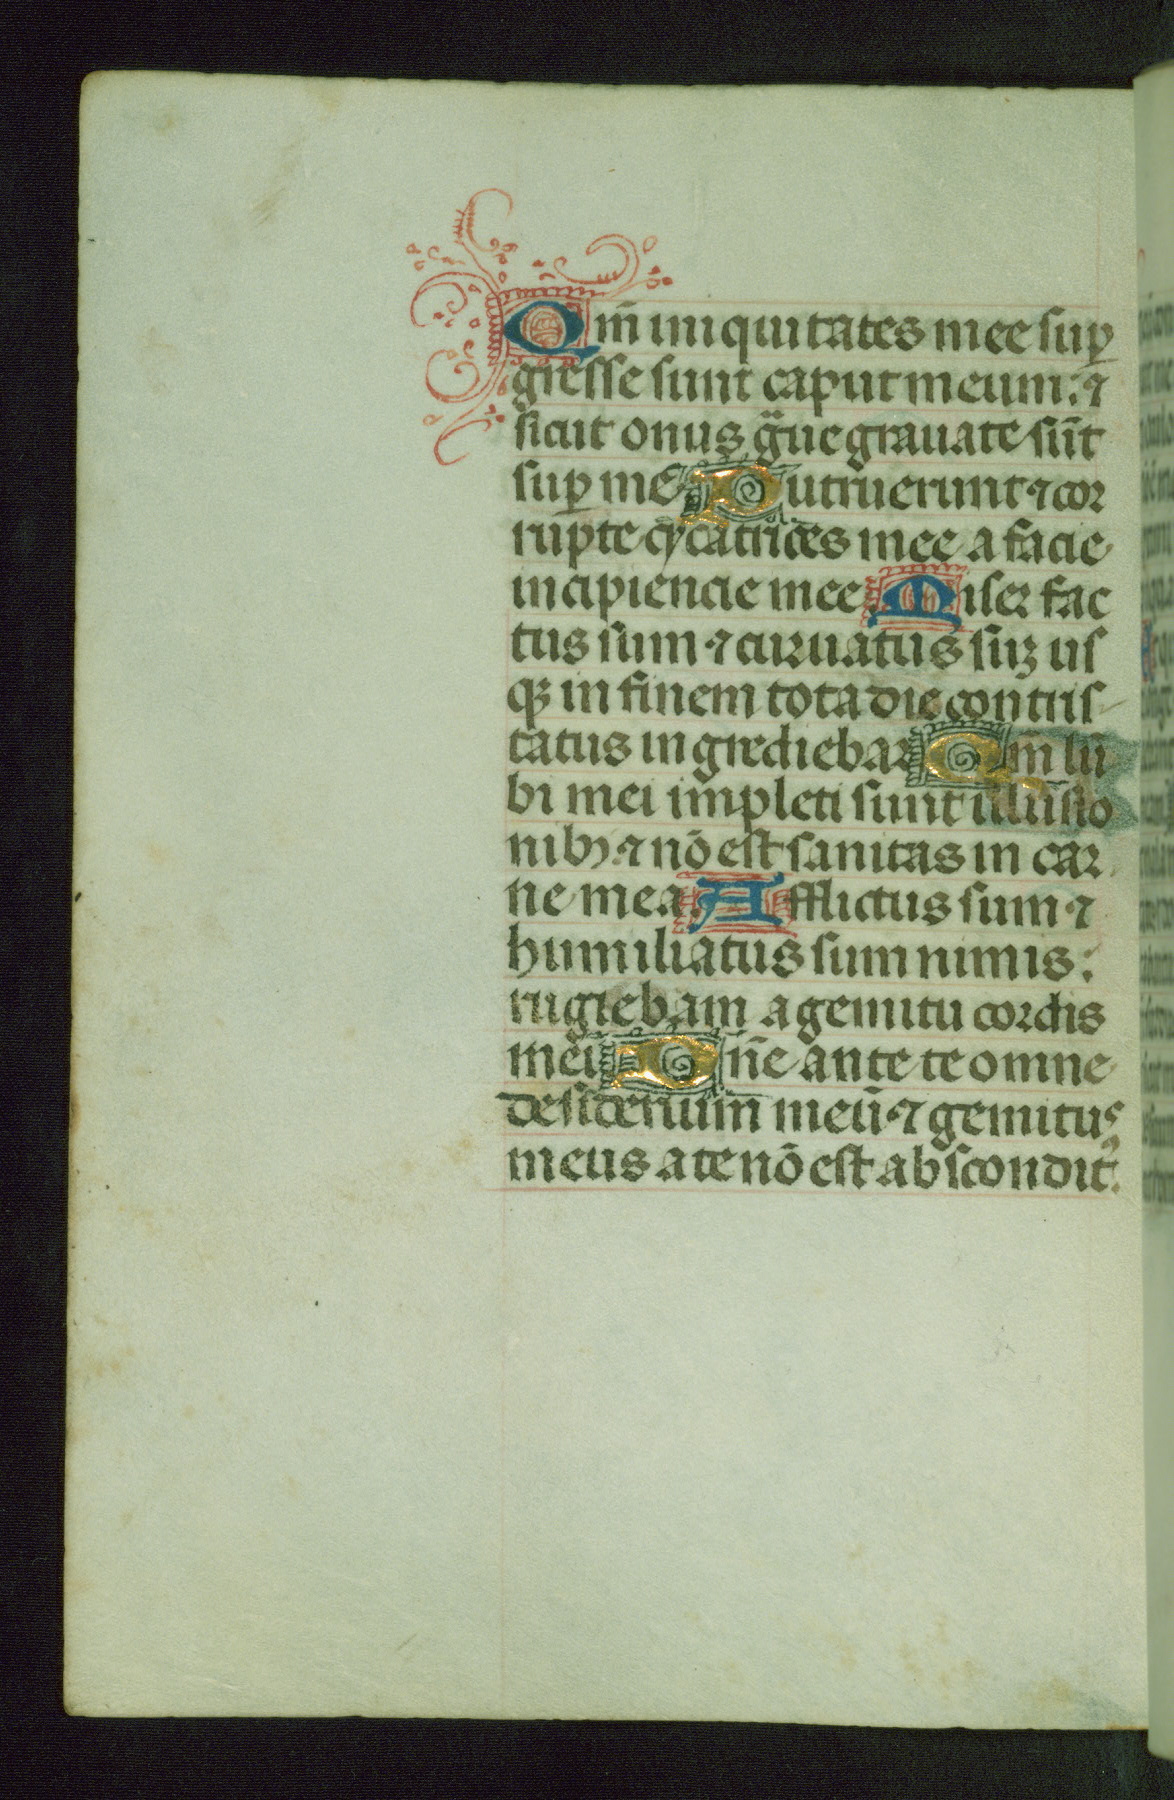 Qm̄ iniquitates mee sup̲
gresse sunt caput meum: ⁊
sicut onus g̈ue grauate sūt
sup̲ me Putruerunt ⁊ cor
rupte cycatrices mee a facie
incipiencie mee Miser fac
tus sum ⁊ curuatus suꝫ us
qꝫ in finem tota die contris
tatus ingrediebar Qm̄ lū
bi mei impleti sunt illusio
nibꝫ ⁊ nō est sanitas in car
ne mea. Afflictus sum ⁊
humiliatus sum nimis:
rugiebam a gemitu cordis
mei Dn̄e ante te omne
desiderium meū ⁊ gemitus
meus a te nō est abscondit᷒.